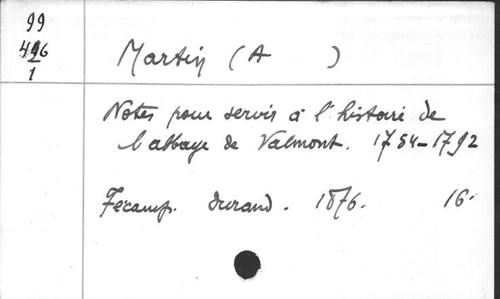 99
446
1
Martin (A )
Notes pour servir à l'histoire de
l'abbaye de Valmont. 1754-1792
Fécamp. Durand. 1876. 16.